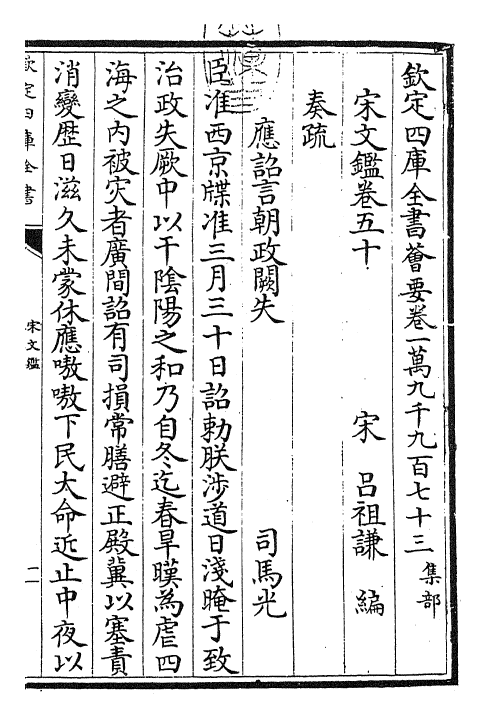 欽定四庫全書薈要卷一萬九千九百七十三集部
宋文鑑卷五十
宋 呂祖謙 編
奏疏
應詔言朝政闕失 司馬光
臣准西京牒准三月三十日詔勅朕涉道日淺晻于致
治政失厥中以干陰陽之和乃自冬迄春旱暵為虐四
海之內被灾者廣間詔有司損常膳避正殿冀以塞責
消變歴日滋久未蒙休應嗷嗷下民大命近止中夜以
欽定四庫全書
宋文鑑
一